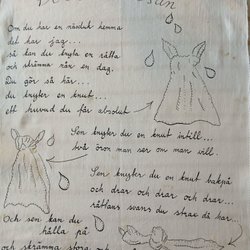 Om du har en näsduk hemma
det har jag...
så kan du knyta en råtta
och skrämma rån en dag.
Du gör så här...
du knyter en knut....
ett huvud du får absolut
Sen knyter du en knut intill...
två öron man ser om man vill.
Sen knyter du en knut bakpå
och drar och drar och drar...
råttans svans du strax då har...
Och sen kan du
hålla på
och skrämma stora och